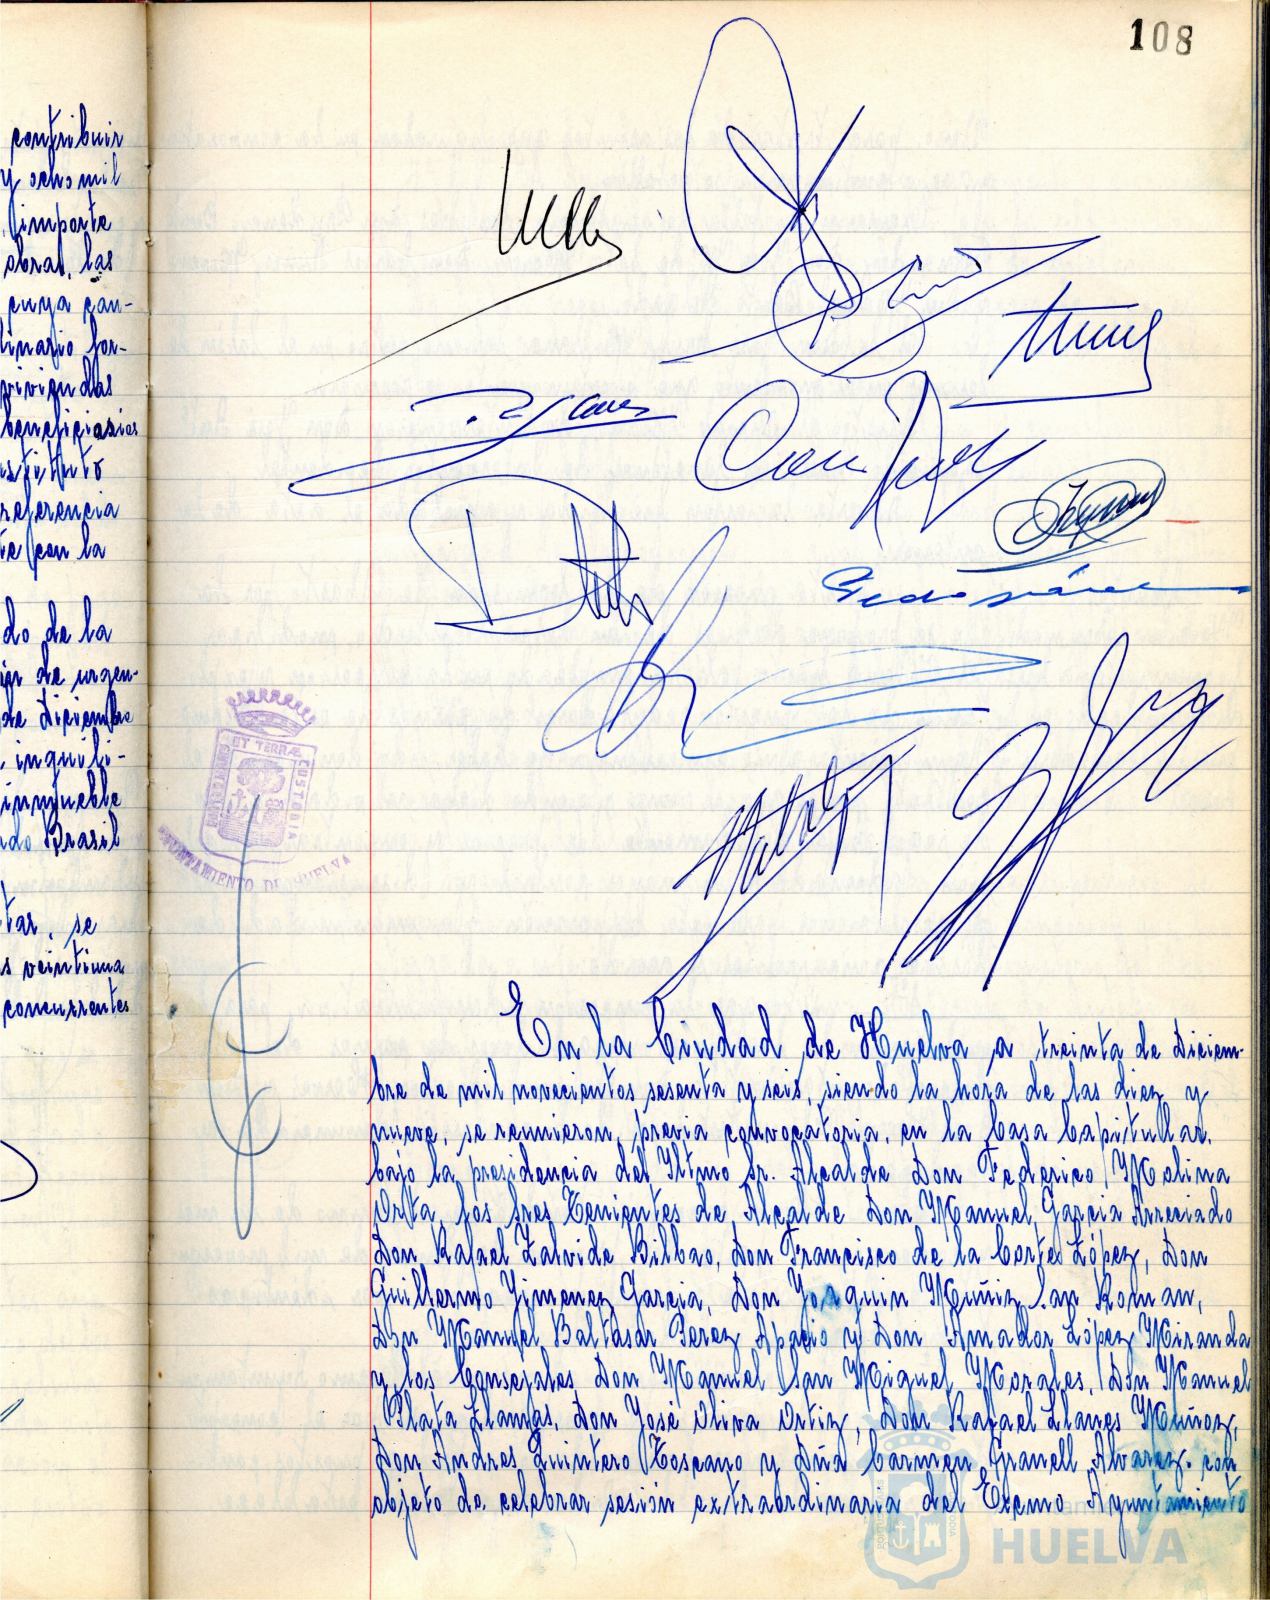 108
contribuir
y ocho mil
importe
obras, las
cuya can-
dinario for-
viviendas
beneficiarios
referencia
con la
do de la
de urgen-
de Diciembre
inquili-
inmueble
Brasil
tar, se
s veintiuna
concurrentes
ET TERRÆ
CUSTODIA
AYUNTAMIENTO DE HUELVA
En la Ciudad de Huelva a treinta de Diciem-
bre de mil novecientos sesenta y seis, siendo la hora de las diez y
nueve, se reunieron, previa convocatoria, en la Casa Capitular,
bajo la presidencia del Iltmo Sr. Alcalde Don Federico Molina
Orta, los Sres Tenientes de Alcalde Don Manuel Garcia Arreciado
Don Rafael Zalvide Bilbao, Don Francisco de la Corte López, Don
Guillermo Jimenez Garcia, Don Joaquin Muñiz San Roman,
Don Manuel Baltasar Perez Aparicio y Don Amador López Miranda
y los Consejales Don Manuel San Miguel Morales, Don Manuel
Plata Llamas, Don José Oliva Ortiz, Don Rafael Llanes Muñoz,
Don Andres Quintero Toscano y Dña Carmen Granell Alvarez. con
objeto de celebrar sesión extraordinaria del Excmo Ayuntamiento
HUELVA